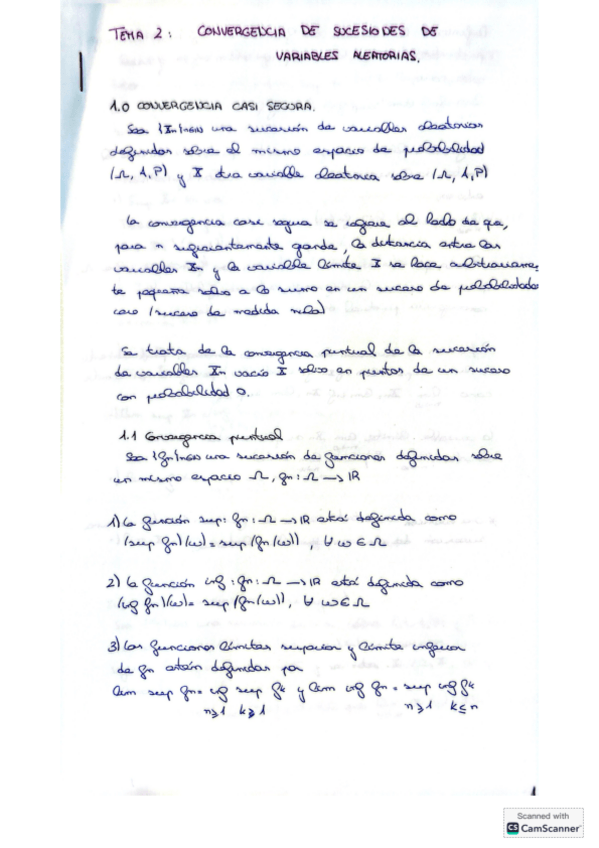 TEMA 2: CONVERGENCIA DE SUCESIONES DE
VARIABLES ALEATORIAS.
1.0 CONVERGENCIA CASI SEGURA.
Sea {Xn}n∈N una sucesión de variables aleatorias
definidas sobre el mismo espacio de probabilidad
(Ω, A, P) y X otra variable aleatoria sobre (Ω, A, P)
La convergencia casi segura se refiere al hecho de que,
para n suficientemente grande, la distancia entre las
variables Xn y la variable límite X se hace arbitrariamen-
te pequeña salvo a lo sumo en un suceso de probabilidad
cero (suceso de medida nula)
Se trata de la convergencia puntual de la sucesión
de variables Xn hacia X salvo en puntos de un suceso
con probabilidad 0.
1.1 Convergencia puntual
Sea {fn}n∈N una sucesión de funciones definidas sobre
un mismo espacio Ω, fn: Ω → IR
1) La función sup: fn: Ω → IR está definida como
(sup fn)(ω) = sup (fn(ω)), ∀ ω ∈ Ω
2) la función inf: fn: Ω → IR está definida como
(inf fn)(ω) = sup (fn(ω)), ∀ ω ∈ Ω
3) Las funciones límites superior y límite inferior
de fn están definidas por
lim sup fn = inf sup fk y lim inf fn = sup inf fk
n≥1 k≥1 n≥1 k≤n
1
Scanned with
CS CamScanner